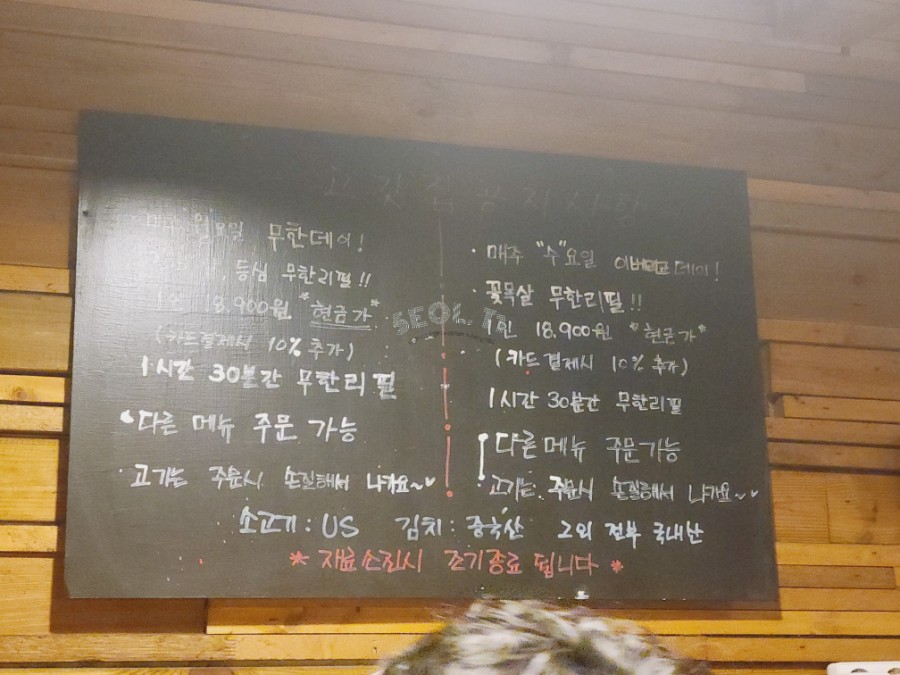 공지사항
매주 일요일 무한데이!
등심 무한리필!!
18.900원 *현금가*
(카드결제시 10% 추가)
1시간 30분간 무한리필
다른 메뉴 주문 가능
고기는 주문시 손질해서 나가요~
· 매주 "수"요일 이벤트데이!
· 꽃목살 무한리필!!
인 18.900원 *현금가*
(카드결제시 10% 추가)
1시간 30분간 무한리필
다른메뉴 주문가능
고기는 주문시 손질해서 나가요~
소고기 : US 김치 : 중국산 그외 전부 국내산
* 재료소진시 조기종료 됩니다 *